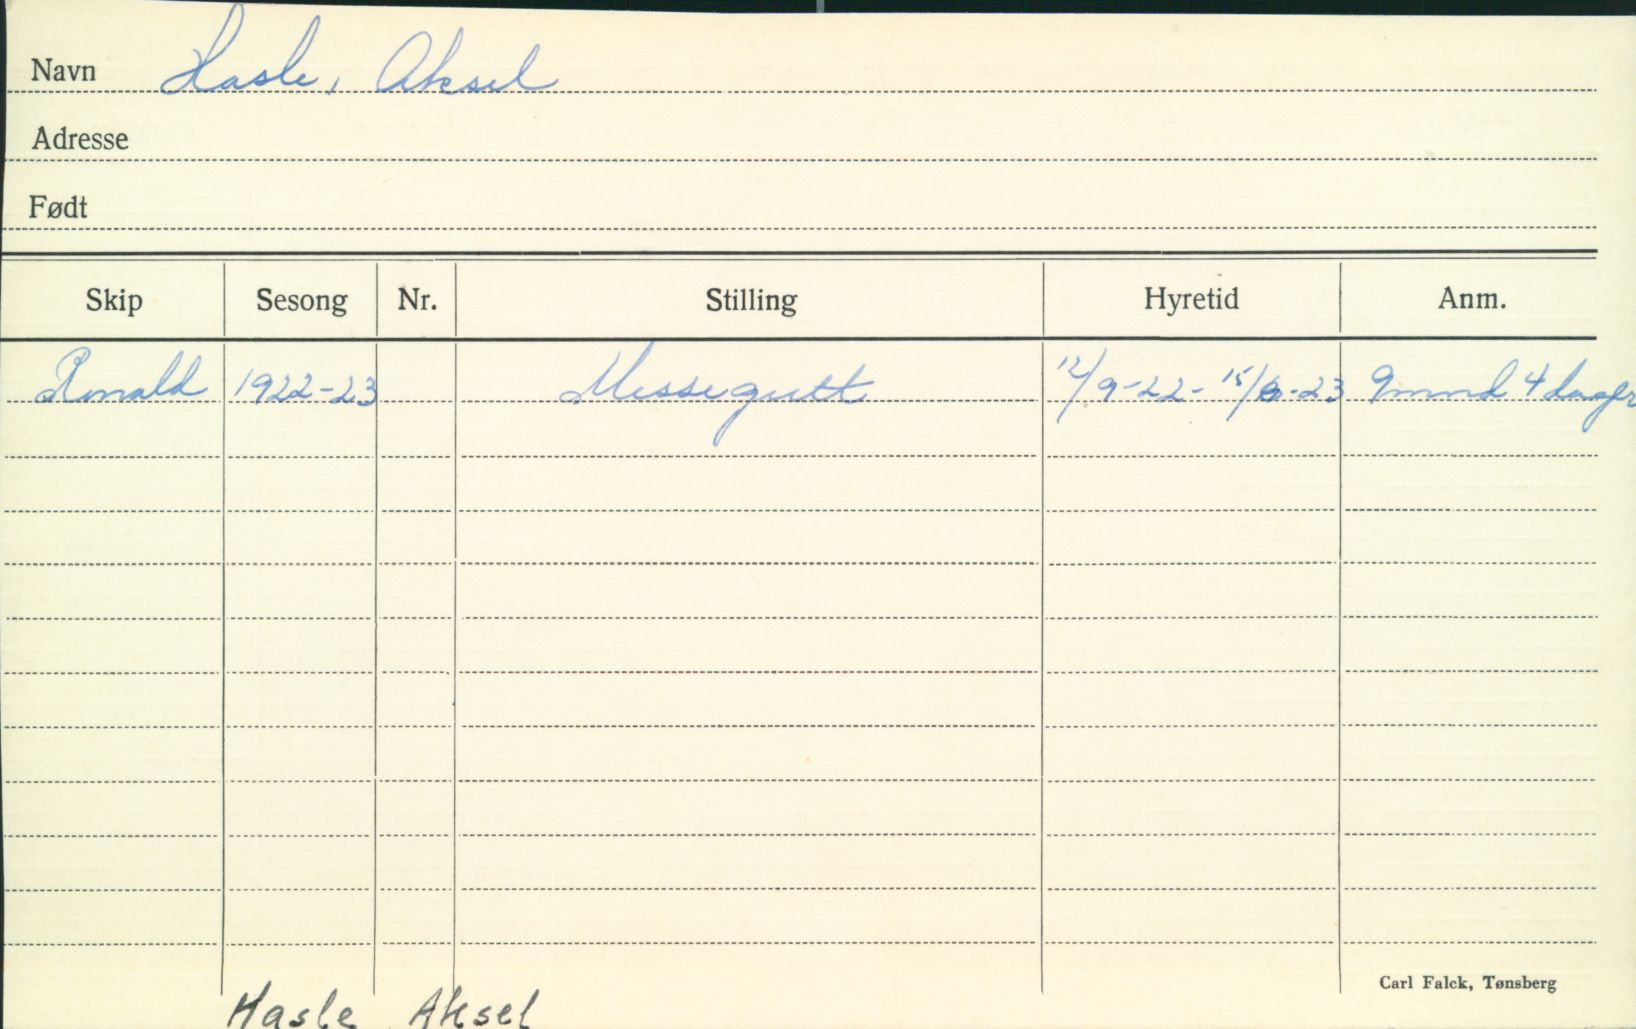 Navn Hasle, Aksel
Adresse
Født
Skip Sesong Nr. Stilling Hyretid Anm.
Ronald 1922-23 Messegutt 12/9-22- 15/6-23 9 mnd 4 dager
Carl Falck, Tønsberg
Hasle Aksel